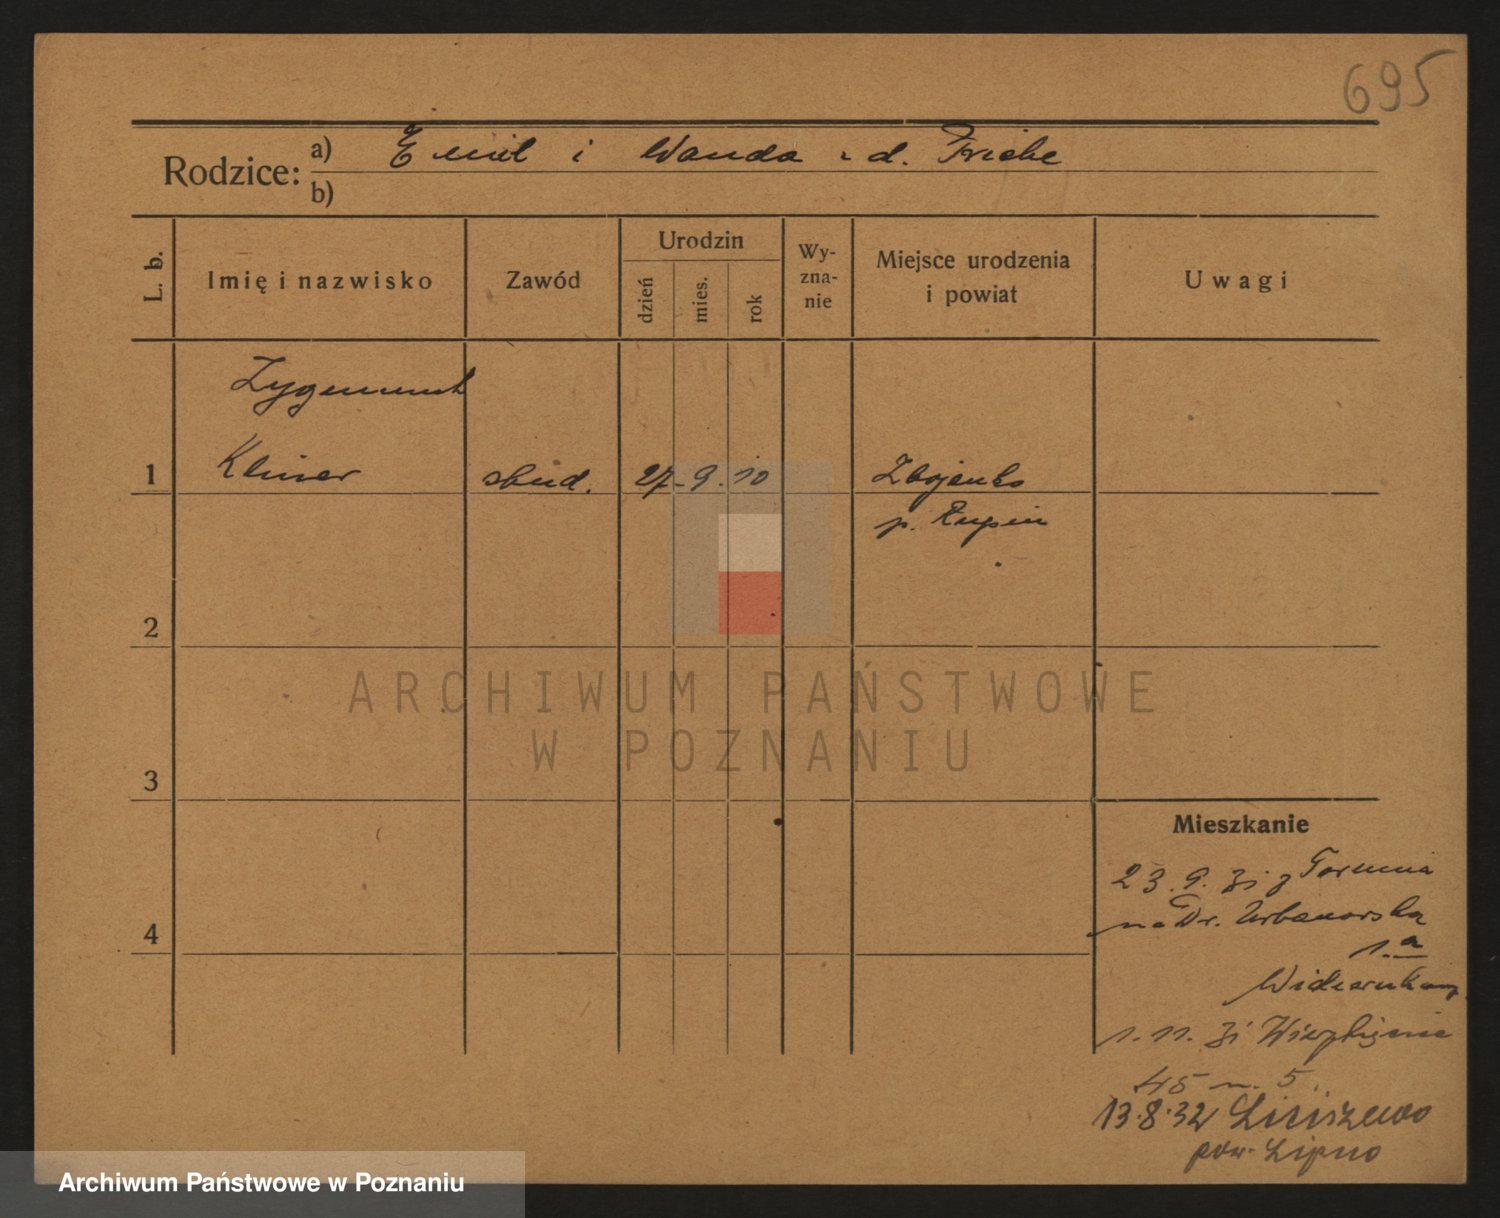 695
Rodzice: a) Emil i Wanda z d. Friche
b)
L. b.
Imię i nazwisko
Zawód
Urodzin
dzień
mies.
rok
Wy-
zna-
nie
Miejsce urodzenia
i powiat
Uwagi
Zygmunt
1 Kliner stud. 27. 9. 10 Zbójenko
p. Rypin
2
3
4
Mieszkanie
23. 9. 31 z Torunia
na Dr. Urbanowską
1.a
1. 11. 31 Wierzbięcice
45 m. 5.
13.8.32 Liciszewo
pow. Lipno
ARCHIWUM PAŃSTWOWE
W POZNANIU
Archiwum Państwowe w Poznaniu